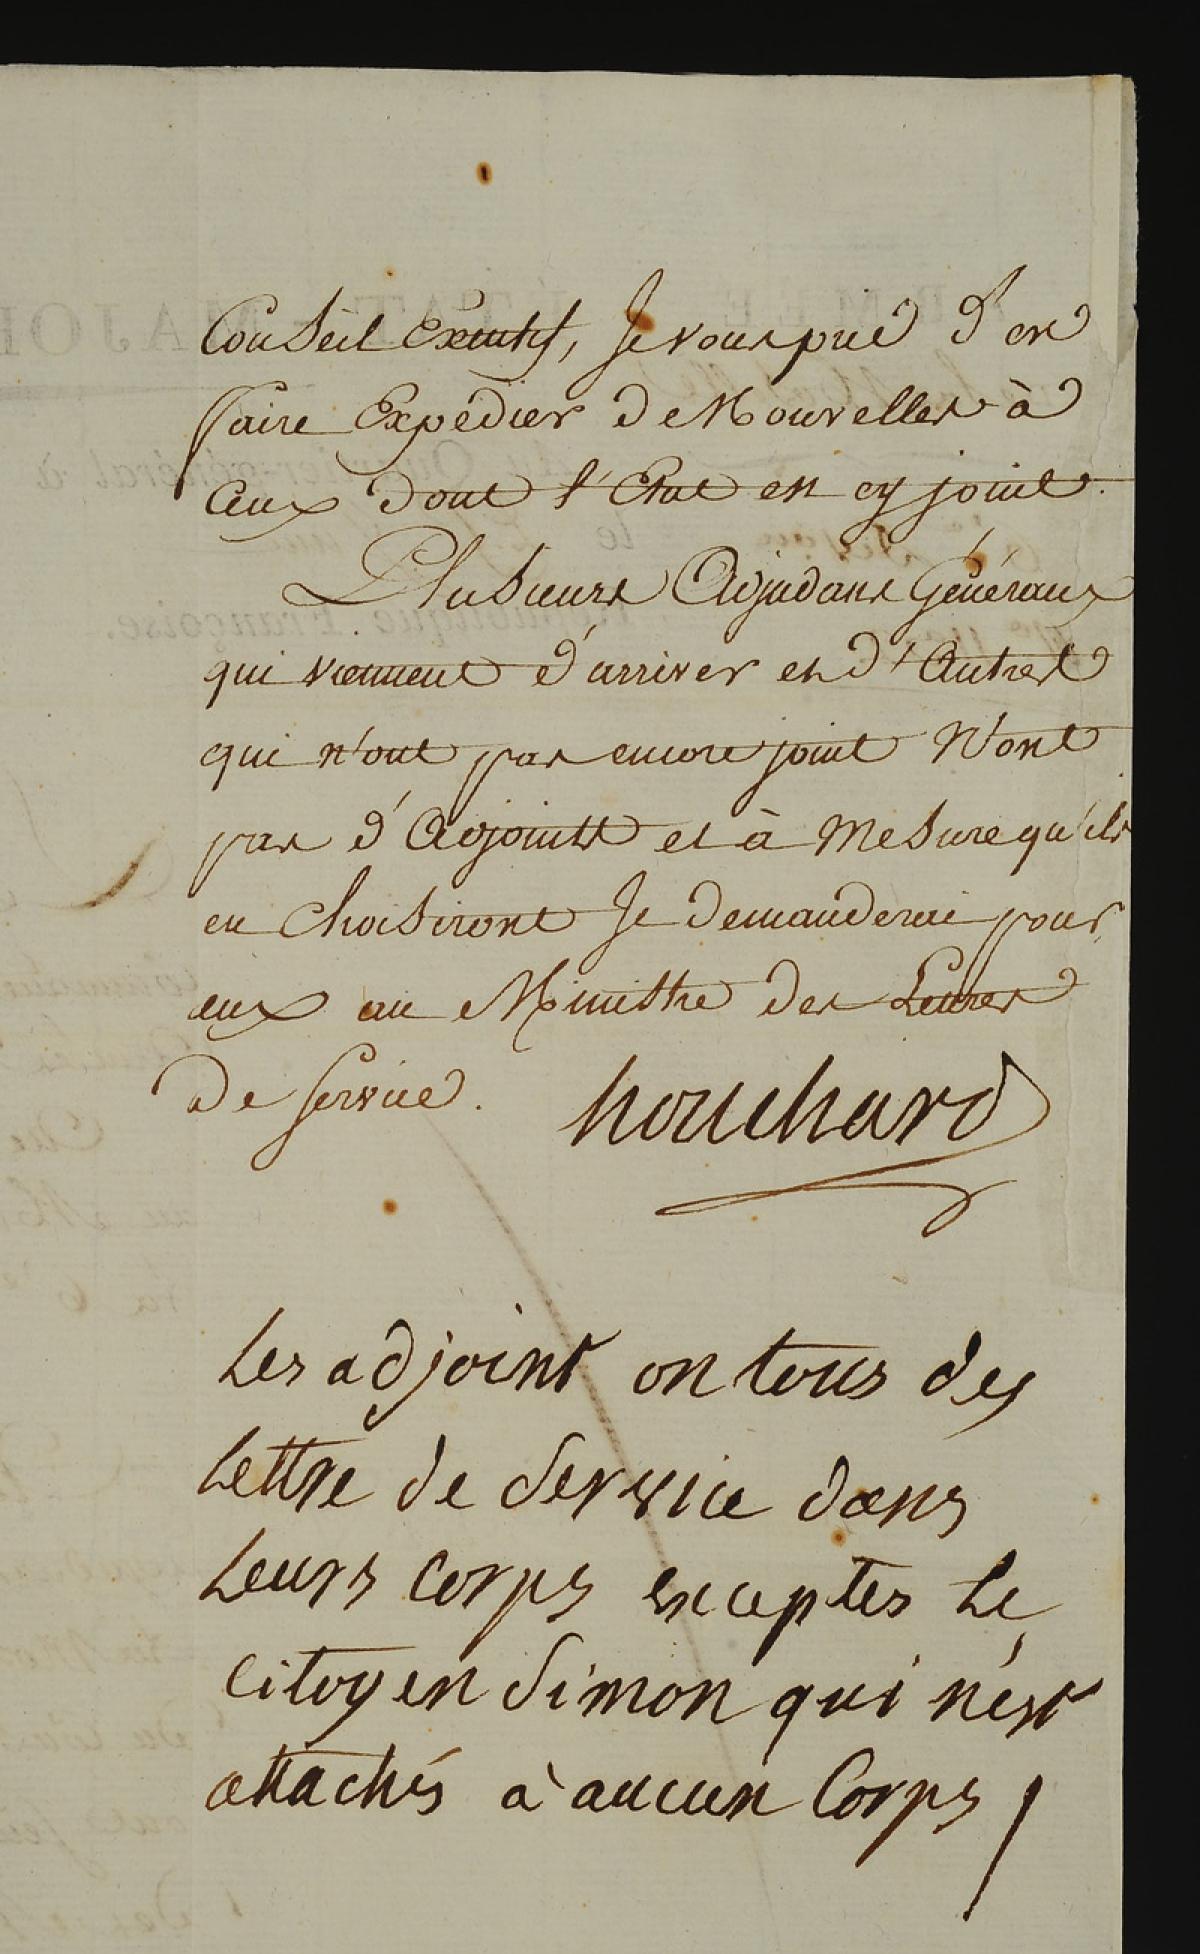 Conseil Executif, Je vous prie d'en
faire Expédier de Nouvelles à
ceux dont l'Etat est cy joint.
Plusieurs Adjudans Généraux
qui viennent d'arriver et d'Autres
qui n'ont pas encore joint N'ont
pas d'Adjoints et à Mesure qu'ils
en Choisiront Je demanderai pour
eux au Ministre des Lettres
de Service. houchard
Les adjoint on tous des
Lettre de Service dans
Leurs Corps exceptes Le
citoyen Simon qui n'est
attachés à aucun Corps